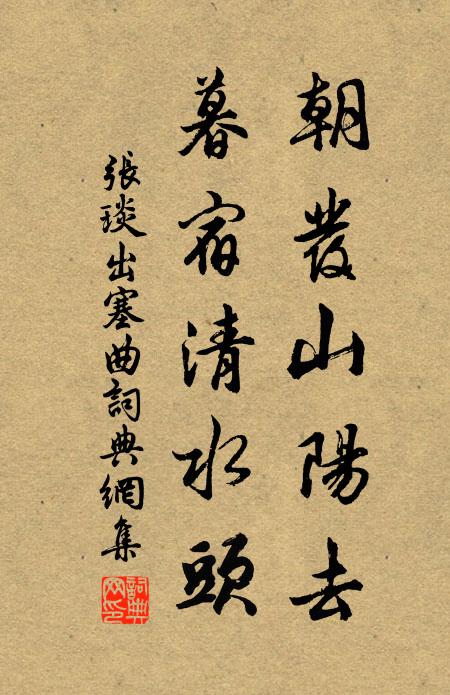 朝發山陽去
暮宿清水頭
張琰出塞曲詞典網集
詞典
网印